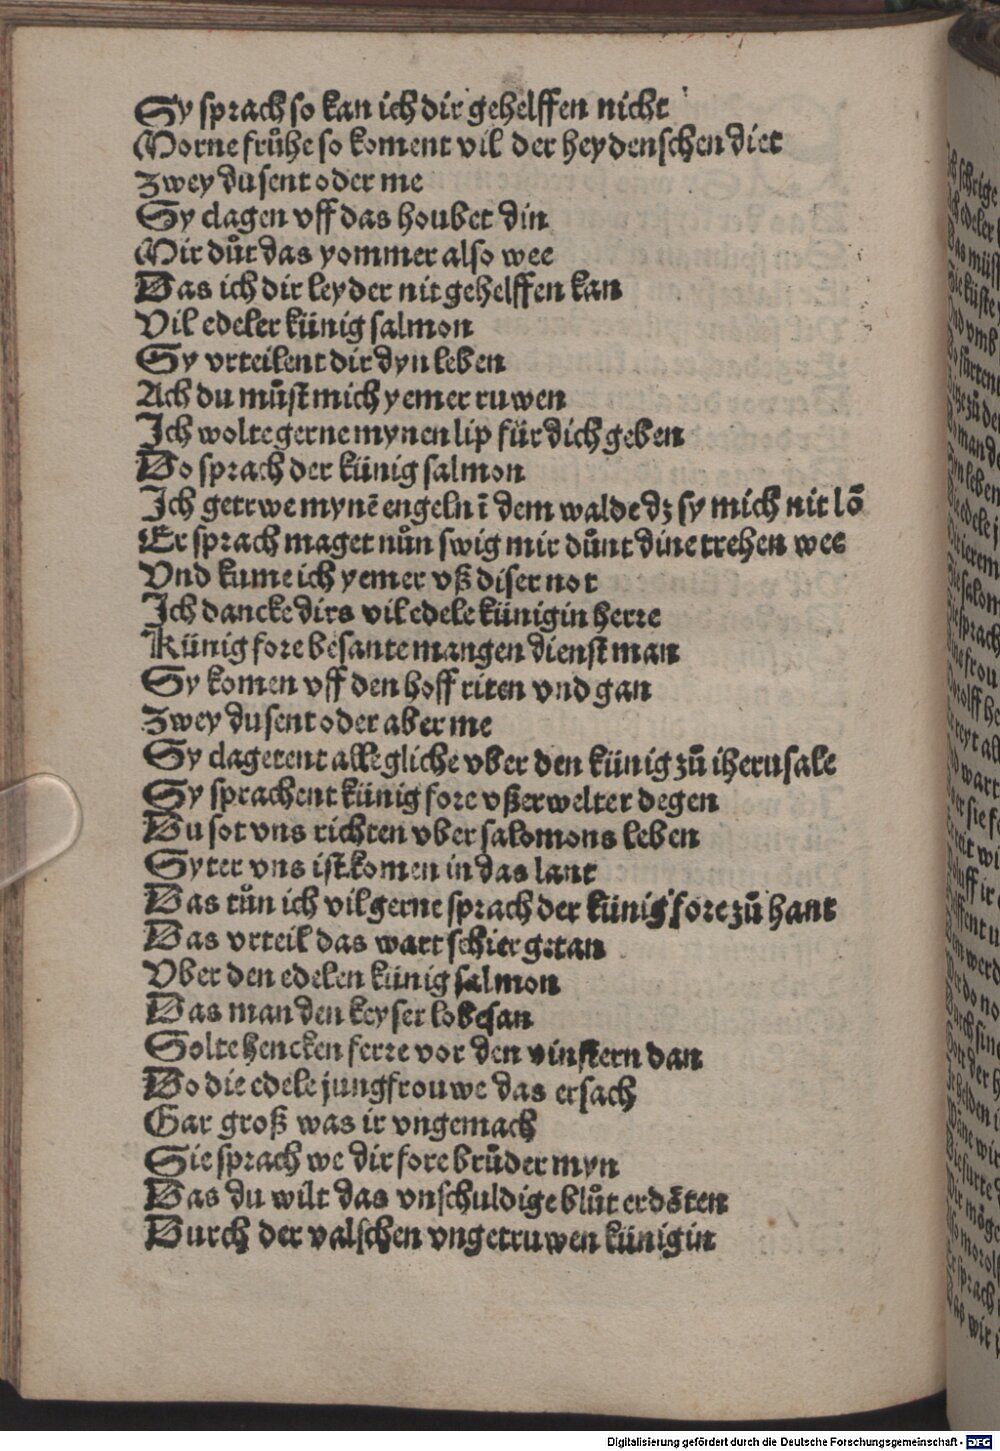 Sy sprach so kan ich dir gehelffen nicht
Morne frůhe so koment vil der heydenschen diet
Zwey dusent oder me
Sy clagen vff das houbet din
Mir důt das yommer also wee
Das ich dir leyder nit gehelffen kan
Vil edeler künig salmon
Sy vrteilent dir dyn leben
Ach du můst mich yemer ruwen
Ich wolte gerne mynen lip für dich geben
Do sprach der künig salmon
Ich getrwe mynē engeln ī dem walde dz sy mich nit lō
Er sprach maget nůn swig mir důnt dine trehen wee
Vnd kume ich yemer vß diser not
Ich dancke dirs vil edele künigin herre
Künig fore besante mangen dienstman
Sy komen vff den hoff riten vnd gan
Zwey dusent oder aber me
Sy clagetent allegliche vber den künig zů iherusale
Sy sprachent künig fore vßerwelter degen
Du sot vns richten vber salomons leben
Syter vns ist komen in das lant
Das tůn ich vil gerne sprach der künig fore zů hant
Das vrteil das wart schier getan
Vber den edelen künig salmon
Das man den keyser lobesan
Solte hencken ferre vor den vinstern dan
Do die edele jungfrouwe das ersach
Gar groß was ir vngemach
Sie sprach we dir fore brůder myn
Das du wilt das vnschuldige blůt erdöten
Durch der valschen vngetruwen künigin
Digitalisierung gefördert durch die Deutsche Forschungsgemeinschaft - DFG